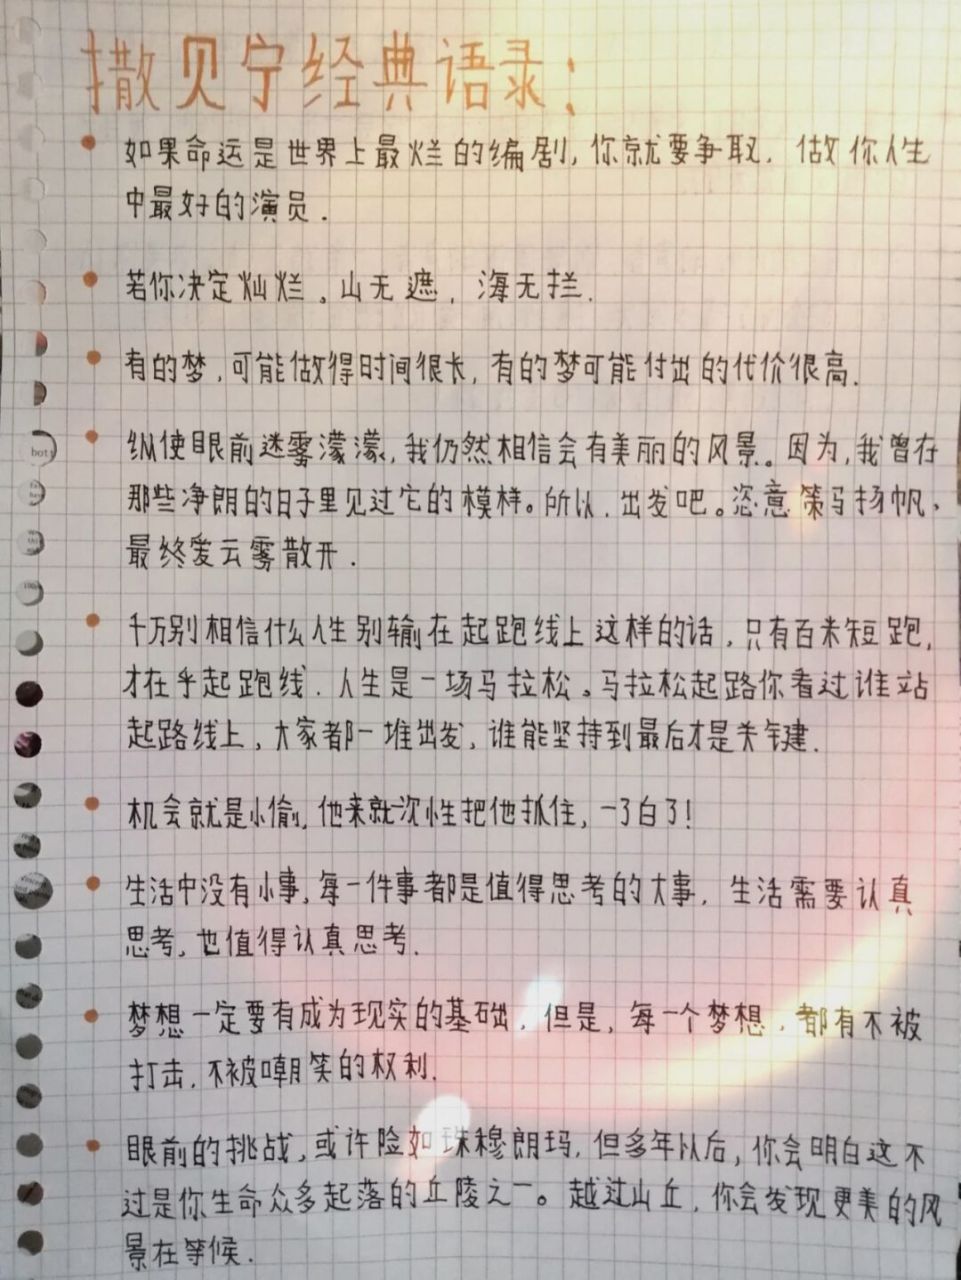 撒贝宁经典语录：
如果命运是世界上最烂的编剧，你就要争取，做你人生
中最好的演员．
若你决定灿烂。山无遮，海无拦．
有的梦，可能做得时间很长，有的梦可能付出的代价很高．
纵使眼前迷雾濛濛，我仍然相信会有美丽的风景。因为，我曾在
那些净朗的日子里见过它的模样。所以，出发吧。恣意策马扬帆、
最终爱云雾散开．
千万别相信什么人生别输在起跑线上这样的话，只有百米短跑，
才在乎起跑线．人生是一场马拉松。马拉松起路你看过谁站
起路线上，大家都一堆出发，谁能坚持到最后才是关键．
机会就是小偷，他来就一次性把他抓住，一了白了！
生活中没有小事，每一件事都是值得思考的大事，生活需要认真
思考，也值得认真思考．
梦想一定要有成为现实的基础，但是，每一个梦想，都有不被
打击，不被嘲笑的权利．
眼前的挑战，或许险如珠穆朗玛，但多年以后，你会明白这不
过是你生命众多起落的丘陵之一。越过山丘，你会发现更美的风
景在等候．
bot